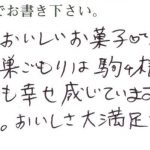 でお書き下さい。
おいしいお菓子♡
巣ごもりは駒ヶ
も幸せ感じています
。おいしさ大満足